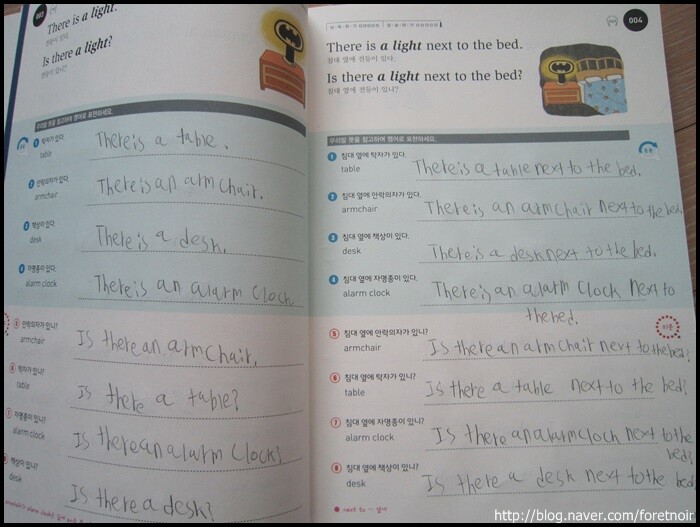 003
There is a light.
전등이 있다.
Is there a light?
전등이 있니?
우리말 뜻을 참고하여 영어로 표현하세요.
1 탁자가 있다.
table
There is a table.
2 안락의자가 있다.
armchair
There is an arm chair.
3 책상이 있다.
desk
There is a desk.
4 자명종이 있다.
alarm clock
There is an alarm clock
5 안락의자가 있니?
armchair
Is there an arm chair,
6 탁자가 있니?
table
Is there a table?
7 자명종이 있니?
alarm clock
Is there an alarm clock?
8 책상이 있니?
desk
Is there a desk?
004
There is a light next to the bed.
침대 옆에 전등이 있다.
Is there a light next to the bed?
침대 옆에 전등이 있니?
우리말 뜻을 참고하여 영어로 표현하세요.
1 침대 옆에 탁자가 있다.
table
There is a table next to the bed.
2 침대 옆에 안락의자가 있다.
armchair
There is an arm chair next to the bed.
3 침대 옆에 책상이 있다.
desk
There is a desk next to the bed.
4 침대 옆에 자명종이 있다.
alarm clock
There is an alarm clock next to
the bed.
5 침대 옆에 안락의자가 있니?
armchair
Is there an arm chair next to the bed?
6 침대 옆에 탁자가 있니?
table
Is there a table next to the bed?
7 침대 옆에 자명종이 있니?
alarm clock
Is there an alarm clock next to the
bed?
8 침대 옆에 책상이 있니?
desk
Is there a desk next to the bed
next to ~ 옆에
http://blog.naver.com/foretnoir